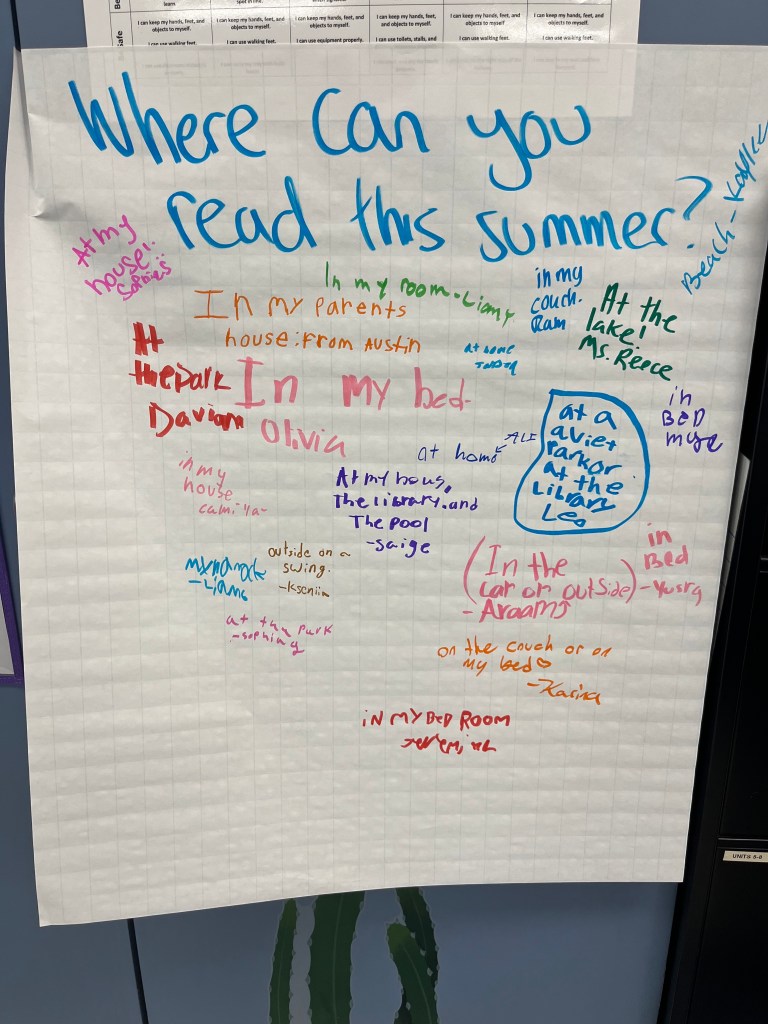 learn
spot in line.
Safe
I can keep my hands, feet, and objects to myself.
I can keep my hands, feet, and objects to myself.
I can keep my hands, feet, and objects to myself.
I can keep my hands, feet, and objects to myself.
I can keep my hands, feet, and objects to myself.
I can keep my hands, feet, and objects to myself.
I can use walking feet.
I can use walking feet.
I can use equipment properly.
I can use toilets, stalls, and
I can use walking feet.
I can use walking feet.
Where can you
read this summer?
Beach -
At my
house!
In my room -
in my
couch.
At the
lake!
Ms. Reece
In my parents
house: From Austin
at home
At
the park
Davion
In my bed-
Olivia
in
BED
at home
ALI
at a
quiet
park or
at the
Library
Leo
in my
house
camiya-
At my hous,
The library, and
The pool
-saige
outside on a
swing.
-Kseniia
(In the
car or outside)
in
Bed
-Yusra
at the park
on the couch or on
my bed
-Karina
iN MY BED ROOM
Jeremiah
UNITS 5-8